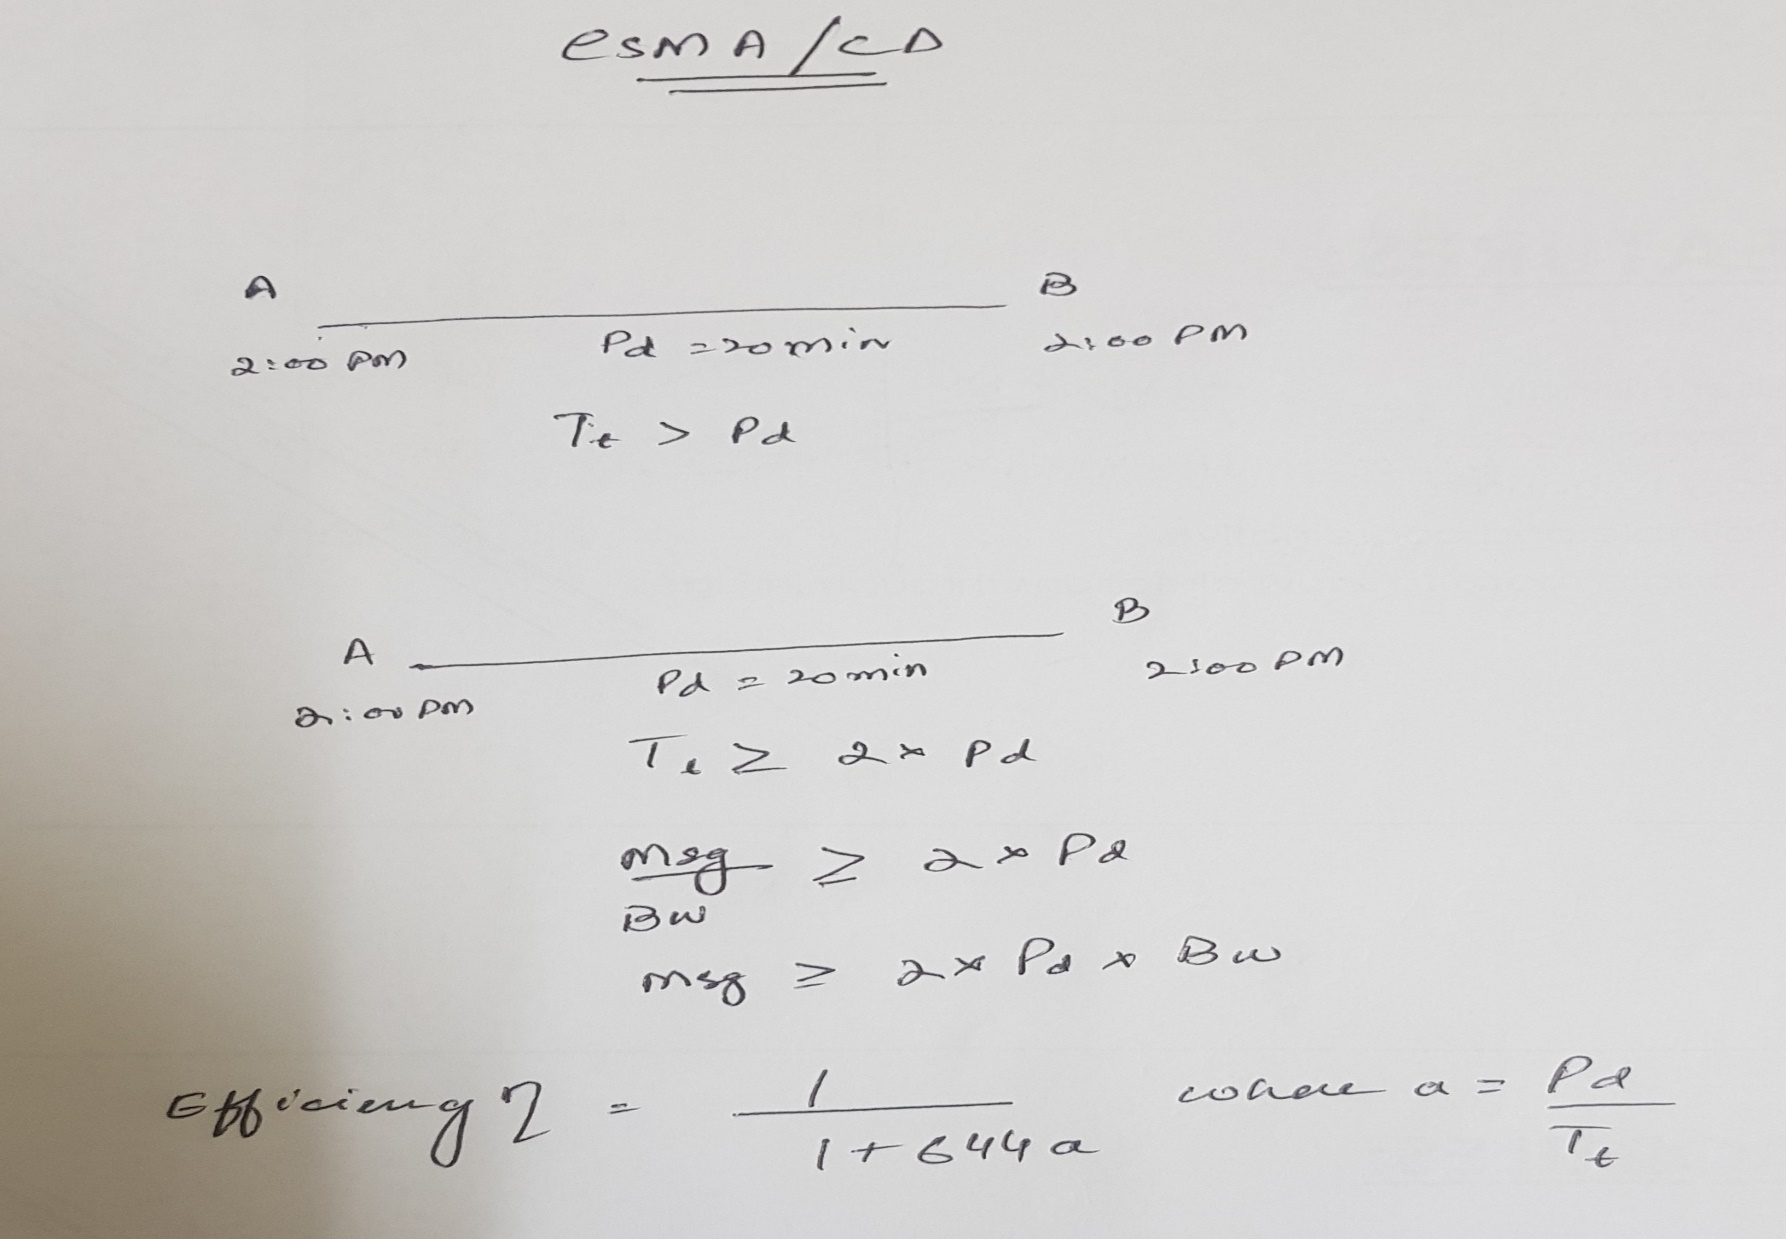 CSMA/CD
A B
2:00 PM Pd = 20 min 2:00 PM
Tt > Pd
A B
2:00 PM Pd = 20 min 2:00 PM
Tt ≥ 2 * Pd
msg ≥ 2 * Pd
BW
msg ≥ 2 * Pd * BW
Efficiency η = 1 where a = Pd
1 + 644 a Tt